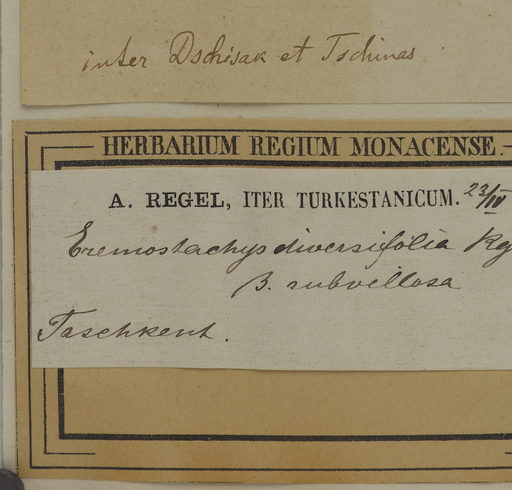 inter Dschisak et Tschinas
HERBARIUM REGIUM MONACENSE.
A. REGEL, ITER TURKESTANICUM. 23/IV
Eremostachys diversifolia Rg
β. subvillosa
Taschkent.